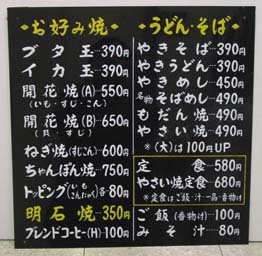 お好み焼
ブタ玉…390円
イカ玉…390円
開花焼(A)…550円
(いも・すじ・こん)
開花焼(B)…650円
(貝・すじ)
ねぎ焼(すじこん)…600円
ちゃんぽん焼…750円
トッピング(いも こんにゃく)各…80円
明石焼…350円
ブレンドコーヒー(H)100円
うどん・そば
やきそば…390円
やきうどん…390円
やきめし…450円
名物そばめし…490円
もだん焼…490円
やさい焼…490円
※(大)は100円UP
定食…580円
やさい焼定食…680円
※定食はご飯・汁・一品・香物付
ご飯(香物付)…100円
みそ汁…80円